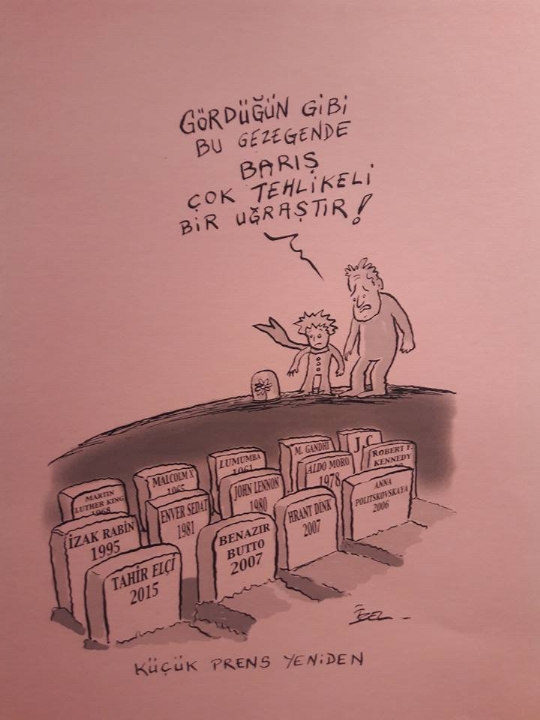 GÖRDÜĞÜN GİBİ
BU GEZEGENDE
BARIŞ
ÇOK TEHLİKELİ
BİR UĞRAŞTIR!
MARTIN
LUTHER KING
1968
MALCOLM X
1965
LUMUMBA
1961
M. GANDHI
J.C
ROBERT F.
KENNEDY
İZAK RABİN
1995
ENVER SEDAT
1981
JOHN LENNON
1980
ALDO MORO
1978
ANNA
POLITSKOVSKAYA
2006
TAHİR ELÇİ
2015
BENAZIR
BUTTO
2007
HRANT DINK
2007
KÜÇÜK PRENS YENİDEN